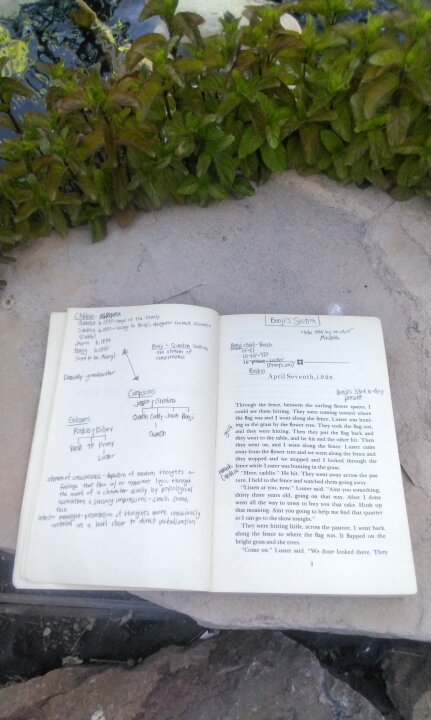 Children
Jason b. 1894
Benji b. 1895
Damuddy - grandmother
Benji & Quentin
are streams of
consciousness
Compsons
Jason & Caroline
Quentin Caddy Jason Benji
Quentin
Roskus & Dilsey
Versh TP Frony
Luster
stream of consciousness - depiction of random thoughts &
feelings that flow w/ no apparent logic through
the mind of a character usually by psychological
associations & sensory impressions - smell, sound,
interior monologue - presentation of thoughts more consciously
controlled on a level closer to direct verbalization
Benji's Section
"tale told by an idiot"
Macbeth
Benji child - Versh
Roskus
Benji's 33rd b-day
present
April Seventh, 1928
Through the fence, between the curling flower spaces, I
could see them hitting. They were coming toward where
the flag was and I went along the fence. Luster was hunt-
ing in the grass by the flower tree. They took the flag out,
and they were hitting. Then they put the flag back and
they went to the table, and he hit and the other hit. Then
they went on, and I went along the fence. Luster came
away from the flower tree and we went along the fence and
they stopped and we stopped and I looked through the
fence while Luster was hunting in the grass.
"Here, caddie." He hit. They went away across the pas-
ture. I held to the fence and watched them going away.
"Listen at you, now." Luster said. "Aint you something,
thirty three years old, going on that way. After I done
went all the way to town to buy you that cake. Hush up
that moaning. Aint you going to help me find that quarter
so I can go to the show tonight."
They were hitting little, across the pasture. I went back
along the fence to where the flag was. It flapped on the
bright grass and the trees.
"Come on." Luster said. "We done looked there. They